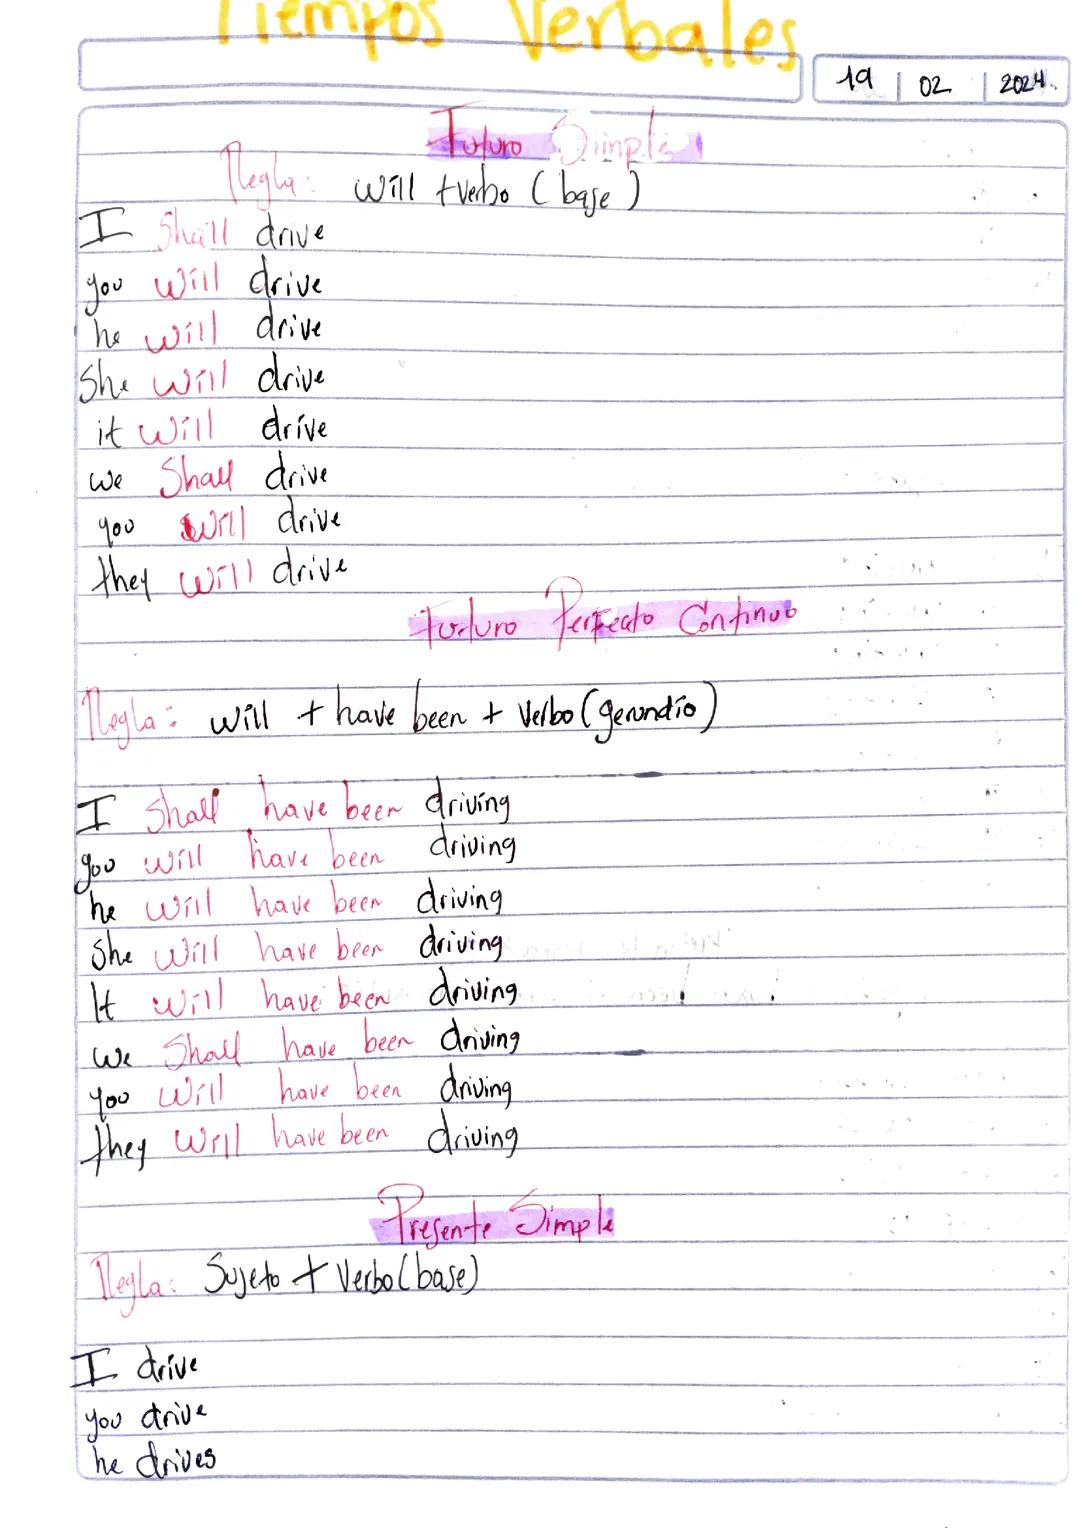 Tiempos Verbales
19 | 02 | 2024
Futuro Simple
Regla: will + verbo (base)
I Shall drive
you will drive
he will drive
She will drive
it will drive
we Shall drive
you will drive
they will drive
Futuro Perfecto Continuo
Regla: will + have been + verbo (gerundio)
I Shall have been driving
you will have been driving
he will have been driving
She will have been driving
It will have been driving
we Shall have been driving
you will have been driving
they will have been driving
Presente Simple
Regla: Sujeto + Verbo (base)
I drive
you drive
he drives